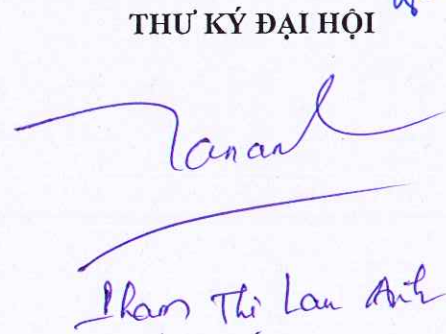 THƯ KÝ ĐẠI HỘI
Lananh
Phạm Thị Lan Anh